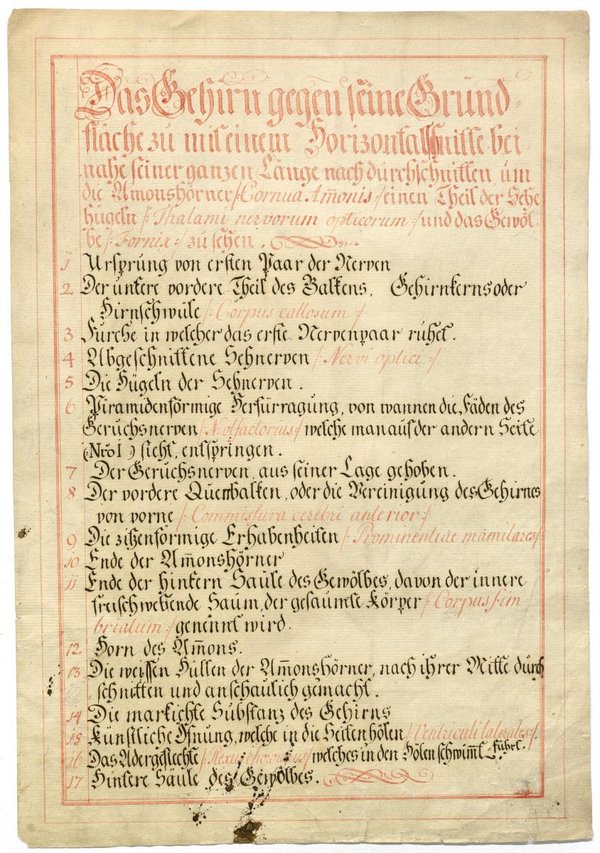 Das Gehirn gegen seine Grund
fläche zu mit einem Horizontalschnitte bei
nahe seiner ganzen Länge nach durchschnitten um
die Am̄onshörner /: Cornua Am̄onis :/ einen Theil der Sehe
hügeln /: Thalami nervorum opticorum :/ und das Gewöl
be /: Fornix :/ zu sehen.
1 Ursprung von ersten Paar der Nerven
2 Der untere vordere Theil des Balkens, Gehirnkerns oder
Hirnschwüle /: Corpus callosum :/
3 Furche in welcher das erste Nervenpaar ruhet.
4 Abgeschnittene Sehnerven /: Nervi optici :/
5 Die Hügeln der Sehnerven.
6 Piramidenförmige Herfürragung, von wannen die Fäden des
Geruchsnerven /: N olfactorius :/ welche man auf der andern Seite
(Nro 1) sieht, entspringen.
7 Der Geruchsnerven, aus seiner Lage gehoben.
8 Der vordere Querbalken, oder die Vereinigung des Gehirnes
von vorne /: Commissura cerebri anterior :/
9 Die zizenförmige Erhabenheiten /: Prominentiae mamilares :/
10 Ende der Am̄onshörner
11 Ende der hintern Säule des Gewölbes, davon der innere
freischwebende Saum, der gesäumte Körper /: Corpus fim
briatum :/ genennt wird.
12 Horn des Am̄ons.
13 Die weissen Hüllen der Am̄onshörner, nach ihrer Mitte durch
schnitten und anschaulich gemacht.
14 Die markichte Substanz des Gehirns
15 Künstliche Öfnung, welche in die Seitenhölen /: Ventriculi laterales :/
führt.
16 Das Adergeflechte /: Plexus choroideus :/ welches in den Hölen schwim̄t
17 Hintere Säule des Gewölbes.